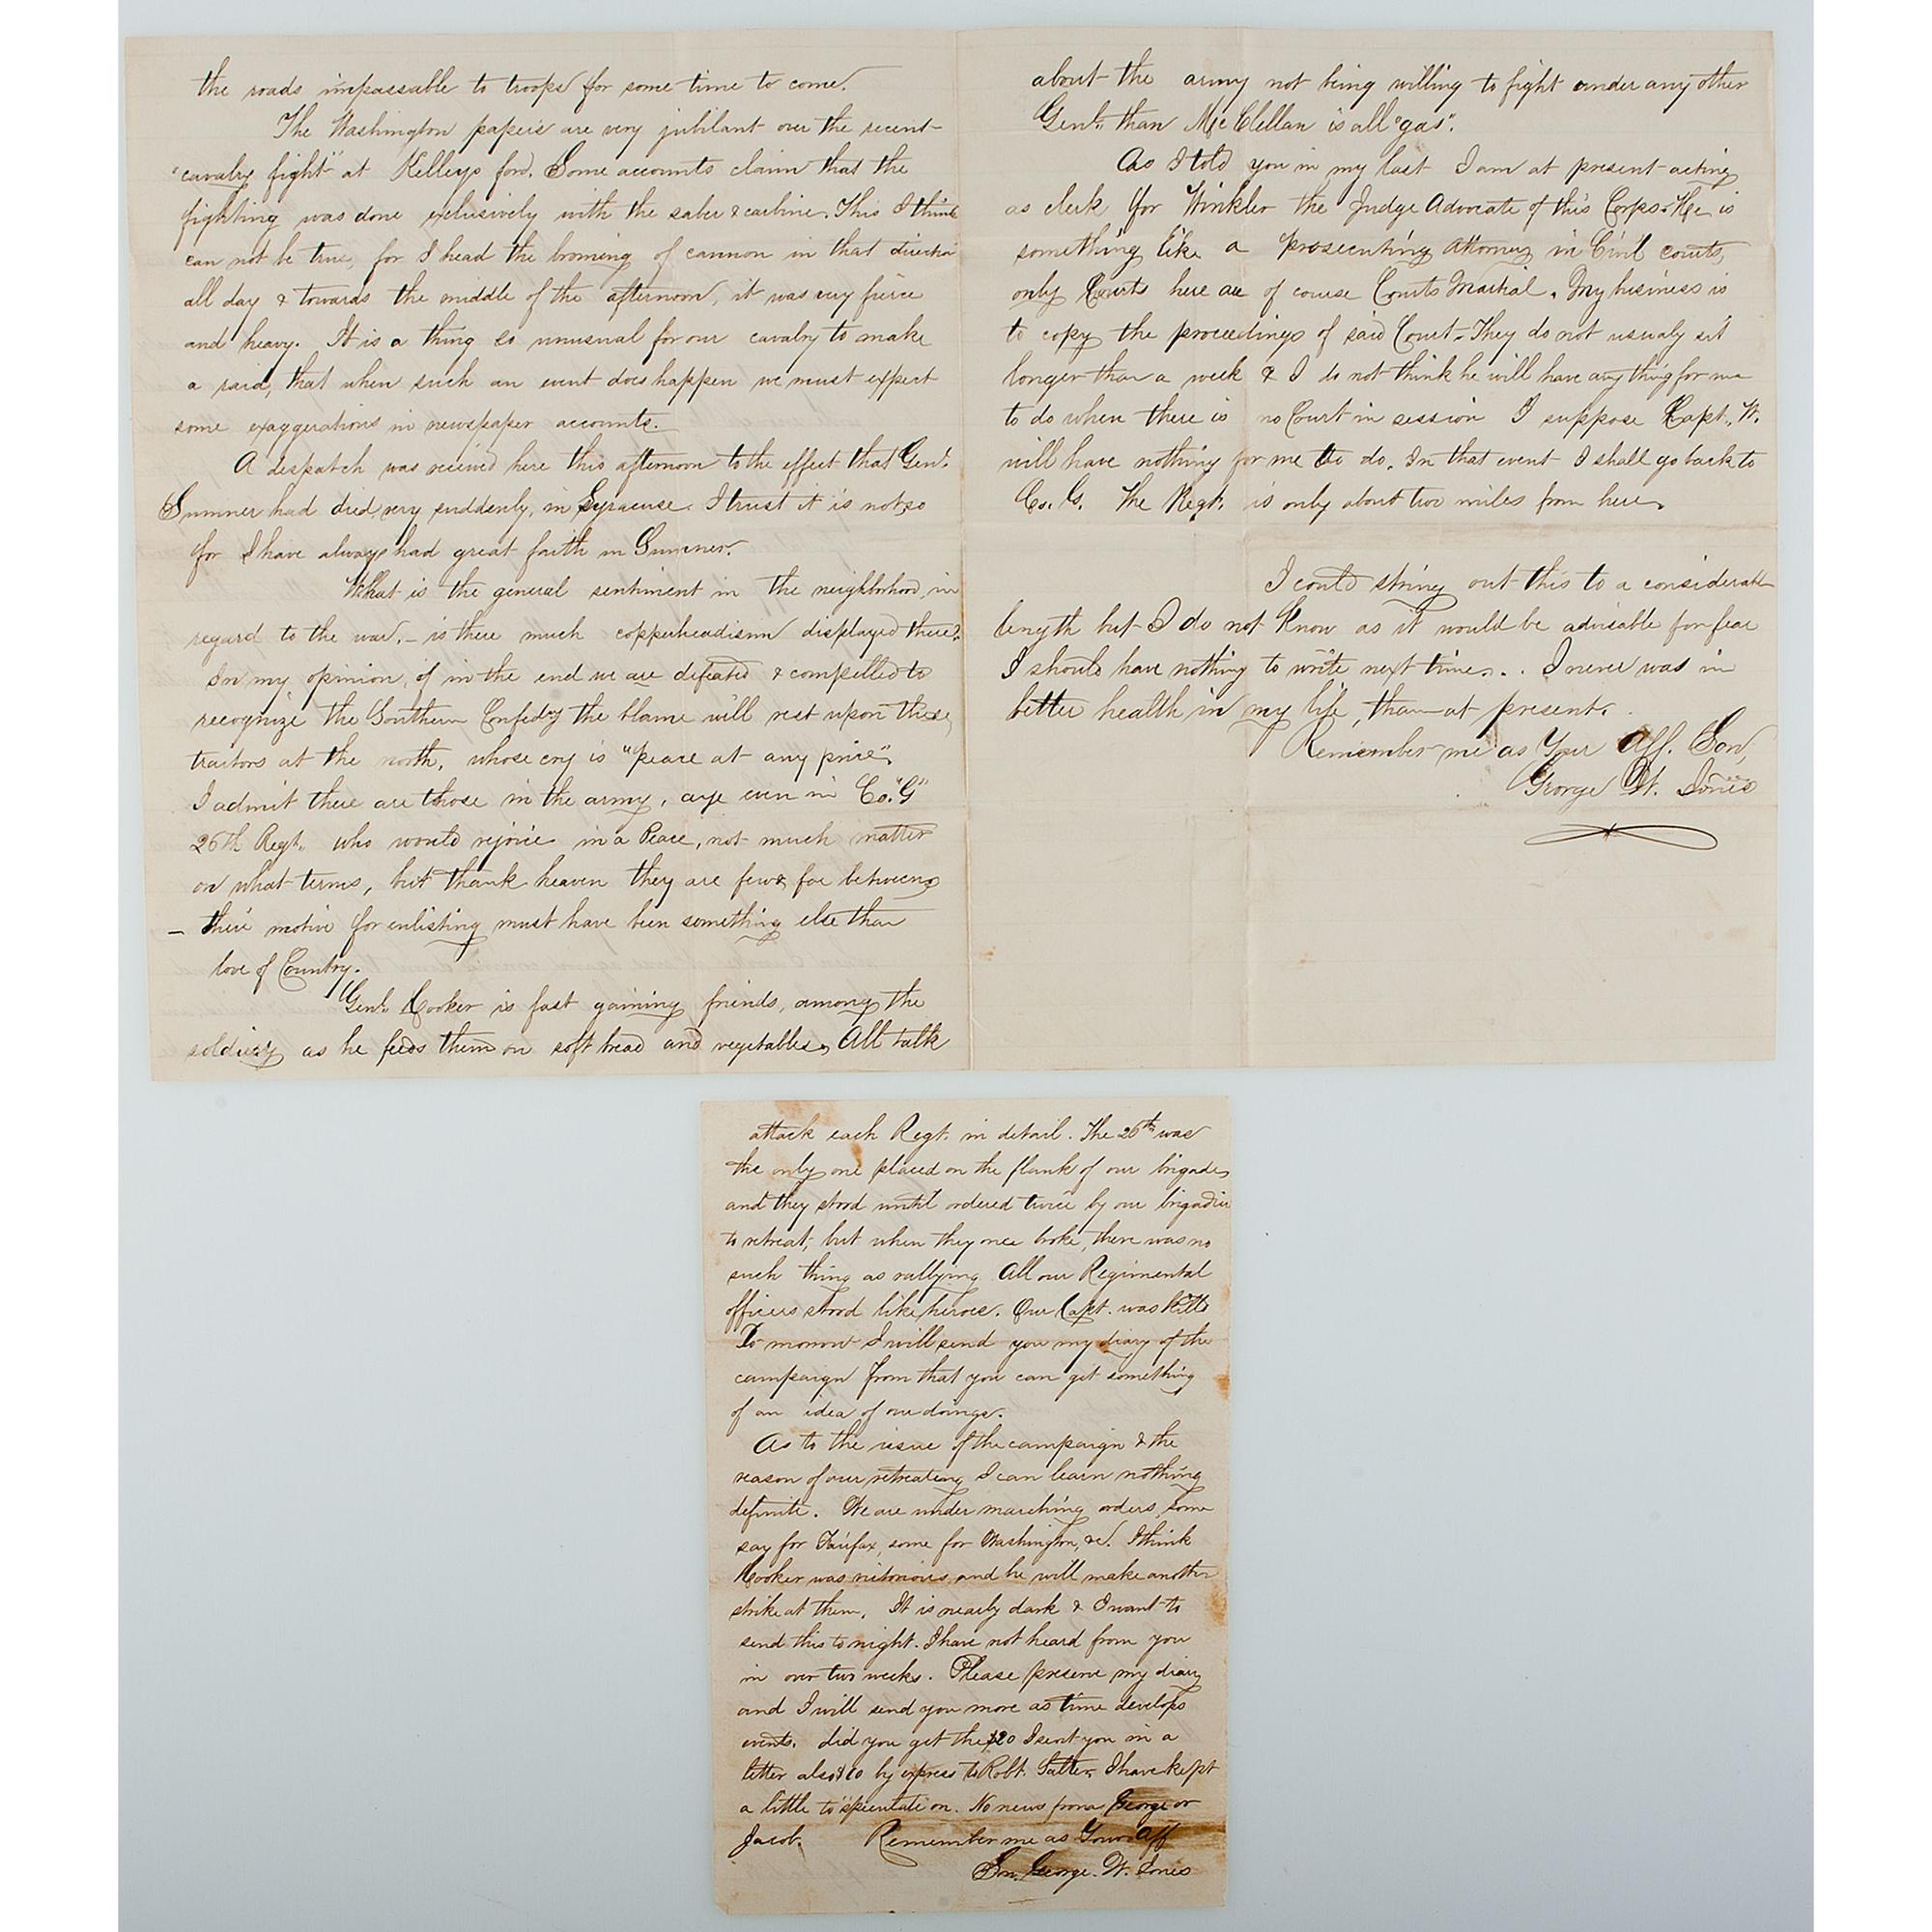 the roads impassable to troops for some time to come.
The Washington papers are very jubilant over the recent
"cavalry fight" at Kelleys ford. Some accounts claim that the
fighting was done exclusively with the saber & carbine. This I think
can not be true, for I head the bromnig of cannon in that direction
all day & towards the middle of the afternoon, it was very fierce
and heavy. It is a thing so unusual for our cavalry to make
a raid, that when such an event does happen we must expect
some exaggerations in newspaper accounts.
A dispatch was recieved here this afternoon to the effect that Genl.
Sumner had died very suddenly, in Syracuse. I trust it is not so
for I have always had great faith in Sumner.
What is the general sentiment in the neighborhood, in
regard to the war, - is there much copperheadism displayed there?
In my opinion, if in the end we are defeated & compelled to
recognize the Southern Confedcy the blame will rest upon these
traitors at the north, whose cry is "peace at any price",
I admit there are those in the army, aye even in Co. "G"
26th Regt. who would rejoice in a Peace, not much matter
on what terms, but thank heaven they are few & far between,
- their motive for enlisting must have been something else than
love of Country.
Genl. Hooker is fast gaining friends, among the
soldiery as he feeds them on soft bread and vegetables, All talk
about the army not being willing to fight under any other
Genl. than McClellan is all "gas".
As I told you in my last I am at present acting
as clerk for Winkler the Judge Advocate of this Corps. He is
something like a prosecuting Attorney in Civil courts,
only Courts here are of course Courts Martial. My business is
to copy the proceedings of said Court - They do not usualy sit
longer than a week & I do not think he will have any thing for me
to do when there is no Court in session I suppose Capt. W.
will have nothing for me to do. In that event I shall go back to
Co. G. The Regt. is only about two miles from here.
I could string out this to a considerable
length but I do not know as it would be advisable for fear
I should have nothing to write next time. . . I never was in
better health in my life, than at present.
Remember me as Your Aff. Son,
George W. Jones
attack each Regt. in detail. The 26th was
the only one placed on the flank of our brigade,
and they stood until ordered twice by our brigadier
to retreat, but when they once broke, there was no
such thing as rallying All our Regimental
officers stood like heroes. Our Capt. was killed
To morrow I will send you my diary of the
campaign from that you can get something
of an idea of our doings.
As to the issue of the campaign & the
reason of our retreating I can learn nothing
definite. We are under marching orders, some
say for Fairfax, some for Washington, &c. I think
Hooker was victorious, and he will make another
strike at them. It is nearly dark & I want to
send this to night. I have not heard from you
in over two weeks. Please preserve my diary
and I will send you more as time develops
events. did you get the $20 I sent you in a
letter also $10 by express to Robt. I have kept
a little to "spiculate" on. No news from George or
Jacob. Remember me as Your Aff
Son, George. W. Jones